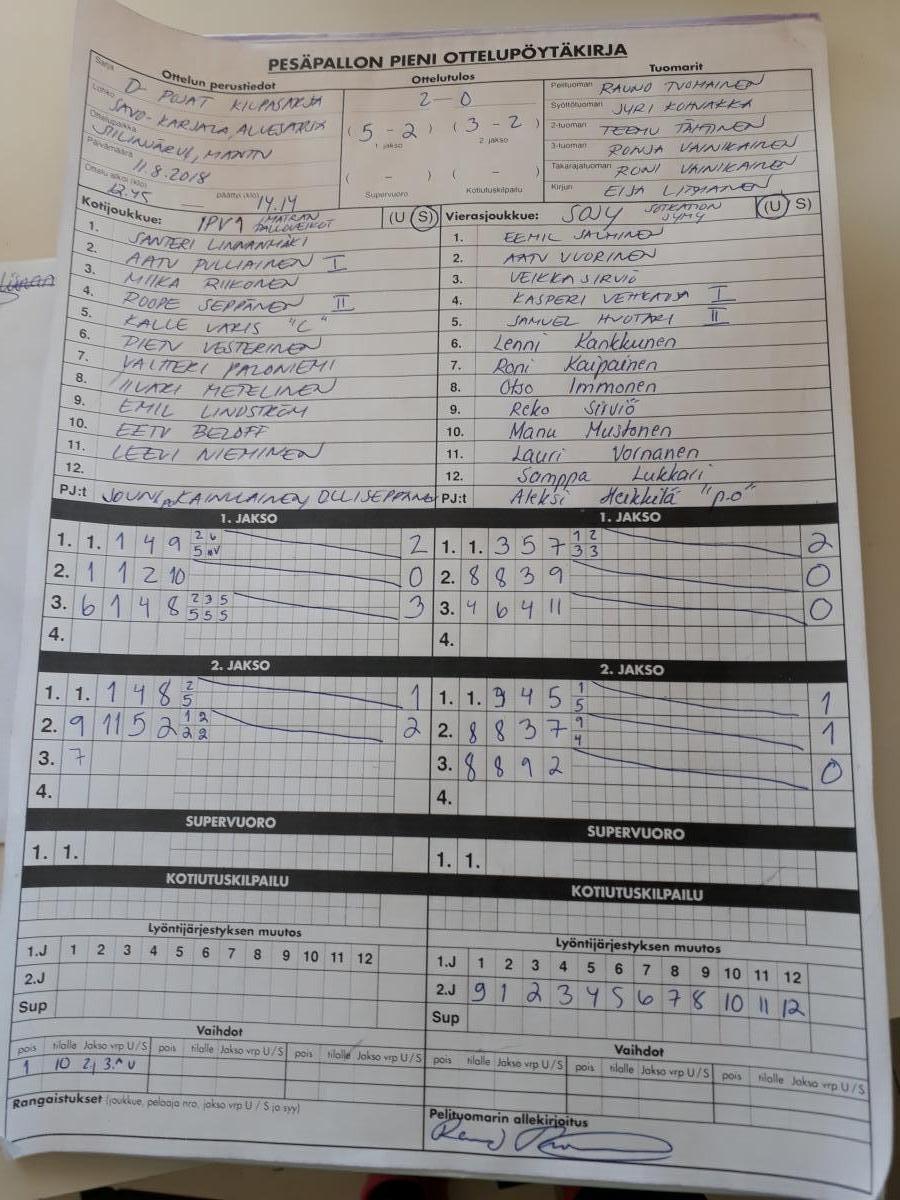 PESÄPALLON PIENI OTTELUPÖYTÄKIRJA
Ottelun perustiedot
Sarja D-POJAT KILPASARJA
Lohko SAVO-KARJALA, ALUESARJA
Ottelupaikka SIILINJÄRVI,
Päivämäärä 11.8.2018
Ottelu alkoi (klo) 12.45 — päättyi (klo) 14.14
Ottelutulos
2 - 0
( 5 - 2 ) ( 3 - 2 )
1. jakso 2. jakso
( - ) ( - )
Supervuoro Kotiutuskilpailu
Tuomarit
Pelituomari RAUNO TUOMAINEN
Syöttötuomari JYRI KOHVAKKA
2-tuomari TEEMU TÄHTINEN
3-tuomari RONJA VAINIKAINEN
Takarajatuomari RONI VAINIKAINEN
Kirjuri EIJA LITMANEN
Kotijoukkue: IPV1 IMATRAN PALLOVEIKOT (U S)
1. SANTERI LINNANMÄKI
2. AATU PULLIAINEN I
3. MIIKA RIIKONEN
4. ROOPE SEPPÄNEN II
5. KALLE VAKIS "C"
6. PIETU VESTERINEN
7. VALTTERI PALONIEMI
8. IIVARI METELINEN
9. EMIL LINDSTRÖM
10. EETU BELOFF
11. LEEVI NIEMINEN
12.
PJ:t JOUNI KAINULAINEN, OLLI SEPPÄNEN
Vierasjoukkue: SOJY SOTKAMON JYMY (U S)
1. EEMIL SALMINEN
2. AATU VUORINEN
3. VEIKKA SIRVIÖ
4. KASPERI I
5. SAMUEL HUOTARI II
6. Lenni Kankkunen
7. Roni Kaipainen
8. Otso Immonen
9. Reko Sirviö
10. Manu Mustonen
11. Lauri Vornanen
12. Somppa Lukkari
PJ:t Aleksi Heikkilä "p.o"
1. JAKSO
1. 1. 1 4 9 2 6 2
5
2. 1 1 2 10 0
3. 6 1 4 8 2 3 5 3
5 5 5
4.
1. JAKSO
1. 1. 3 5 7 1 2 2
3 3
2. 8 8 3 9 0
3. 4 6 4 11 0
4.
2. JAKSO
1. 1. 1 4 8 2 1
5
2. 9 11 5 2 1 2 2
2 2
3. 7
4.
2. JAKSO
1. 1. 9 4 5 1 1
5
2. 8 8 3 7 9 1
4
3. 8 8 9 2 0
4.
SUPERVUORO
1. 1.
SUPERVUORO
1. 1.
KOTIUTUSKILPAILU
KOTIUTUSKILPAILU
Lyöntijärjestyksen muutos
1.J 1 2 3 4 5 6 7 8 9 10 11 12
2.J
Sup
Lyöntijärjestyksen muutos
1.J 1 2 3 4 5 6 7 8 9 10 11 12
2.J 9 1 2 3 4 5 6 7 8 10 11 12
Sup
Vaihdot
pois tilalle Jakso vrp U/S pois tilalle Jakso vrp U/S pois tilalle Jakso vrp U/S
1 10 2j 3.^ U
Vaihdot
pois tilalle Jakso vrp U/S pois tilalle Jakso vrp U/S pois tilalle Jakso vrp U/S
Rangaistukset (joukkue, pelaaja nro, jakso vrp U / S ja syy)
Pelituomarin allekirjoitus